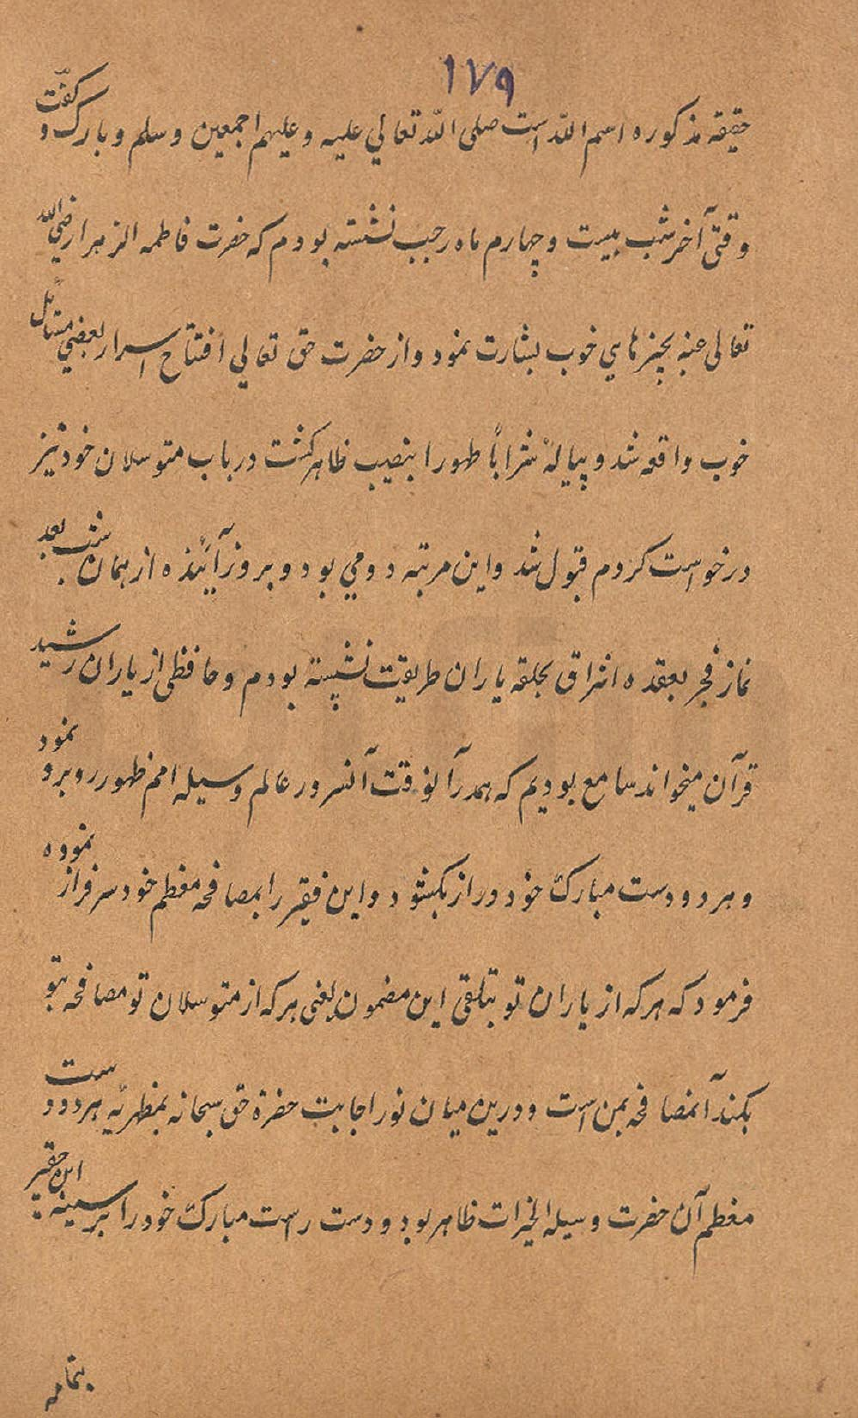 ١٧٩
حقیقه مذکوره اسم اللّه است صلی اللّه تعالي علیه و علیهم اجمعین وسلم و بارک و گفت
وقتی آخر شب بیست و چهارم ماه رجب نشسته بودم که حضرت فاطمه الزهرا رضی الله
تعالی عنها بچیزهاي خوب بشارت نمود و از حضرت حق تعالي افتتاح اسرار بعضي مسائل
خوب واقعه شد و پیالهٔ شراباً طهورا بنصیب ظاهر گشت در باب متوسلان خود نیز
درخواست کردم قبول شد و این مرتبه دومي بود و بروز آئنده از همان شب بعد
نماز فجر بعقده اشراق بحلقه یاران طریقت نشسته بودم و حافظی از یاران رشید
قرآن میخواند سامع بودیم که همدرآنوقت آنسرور عالم وسیله امم ظهور روبرو نمود
و هر دو دست مبارک خود دراز بکشود و این فقیر را بمصافحه معظم خود سرفراز نموده
فرمود که هر که از یاران تو بتلقی این مضمون یعنی هر که از متوسلان تو مصافحه بتو
بکند آنمصافحه بمن است و درین میان نور اجابت حضرة حق سبحانه بمظهریه هر دو دست
معظم آن حضرت وسیله الخیرات ظاهر بود و دست راست مبارک خود را بر سینه این حقیر
بتمامه